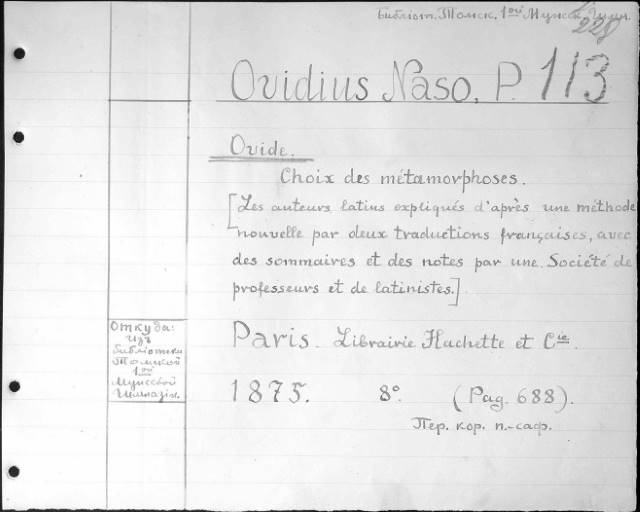 Библіот. Томск. 1ой Мужск. Гимн.
228
Ovidius Naso, P. 113
Ovide.
Choix des métamorphoses.
[Les auteurs latins expliqués d'après une méthode
nouvelle par deux traductions françaises, avec
des sommaires et des notes par une Société de
professeurs et de latinistes.]
Откуда:
Изъ
библіотеки
Томской
1ой
Мужской
Гимназіи.
Paris. Librairie Hachette et Cie.
1875. 8°. (Pag. 688).
Пер. кор. п.-саф.